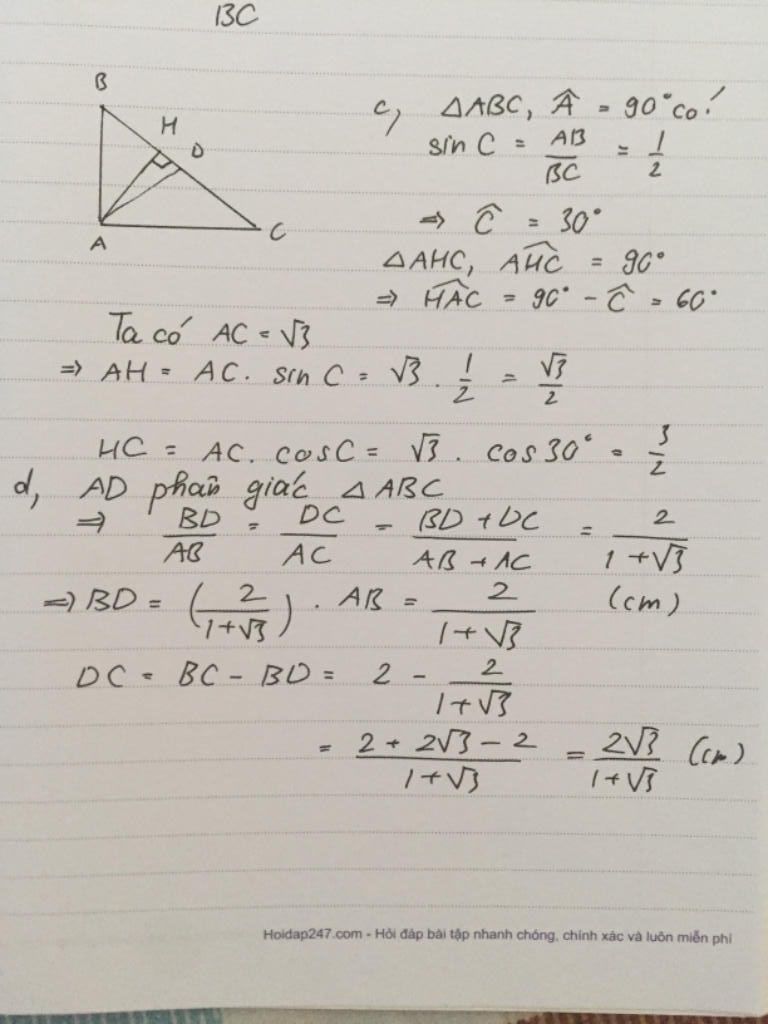 BC
B
H
D
A
C
c, △ABC, Â = 90° có:
sin C = AB/BC = 1/2
⇒ Ĉ = 30°
△AHC, AHC^ = 90°
⇒ HAC^ = 90° - Ĉ = 60°
Ta có AC = √3
⇒ AH = AC. sin C = √3 . 1/2 = √3/2
HC = AC. cos C = √3 . cos 30° = 3/2
d, AD phân giác △ABC
⇒ BD/AB = DC/AC = (BD + DC)/(AB + AC) = 2/(1 + √3)
⇒ BD = (2/(1+√3)) . AB = 2/(1 + √3) (cm)
DC = BC - BD = 2 - 2/(1 + √3)
= (2 + 2√3 - 2)/(1 + √3) = 2√3/(1 + √3) (cm)
Hoidap247.com - Hỏi đáp bài tập nhanh chóng, chính xác và luôn miễn phí